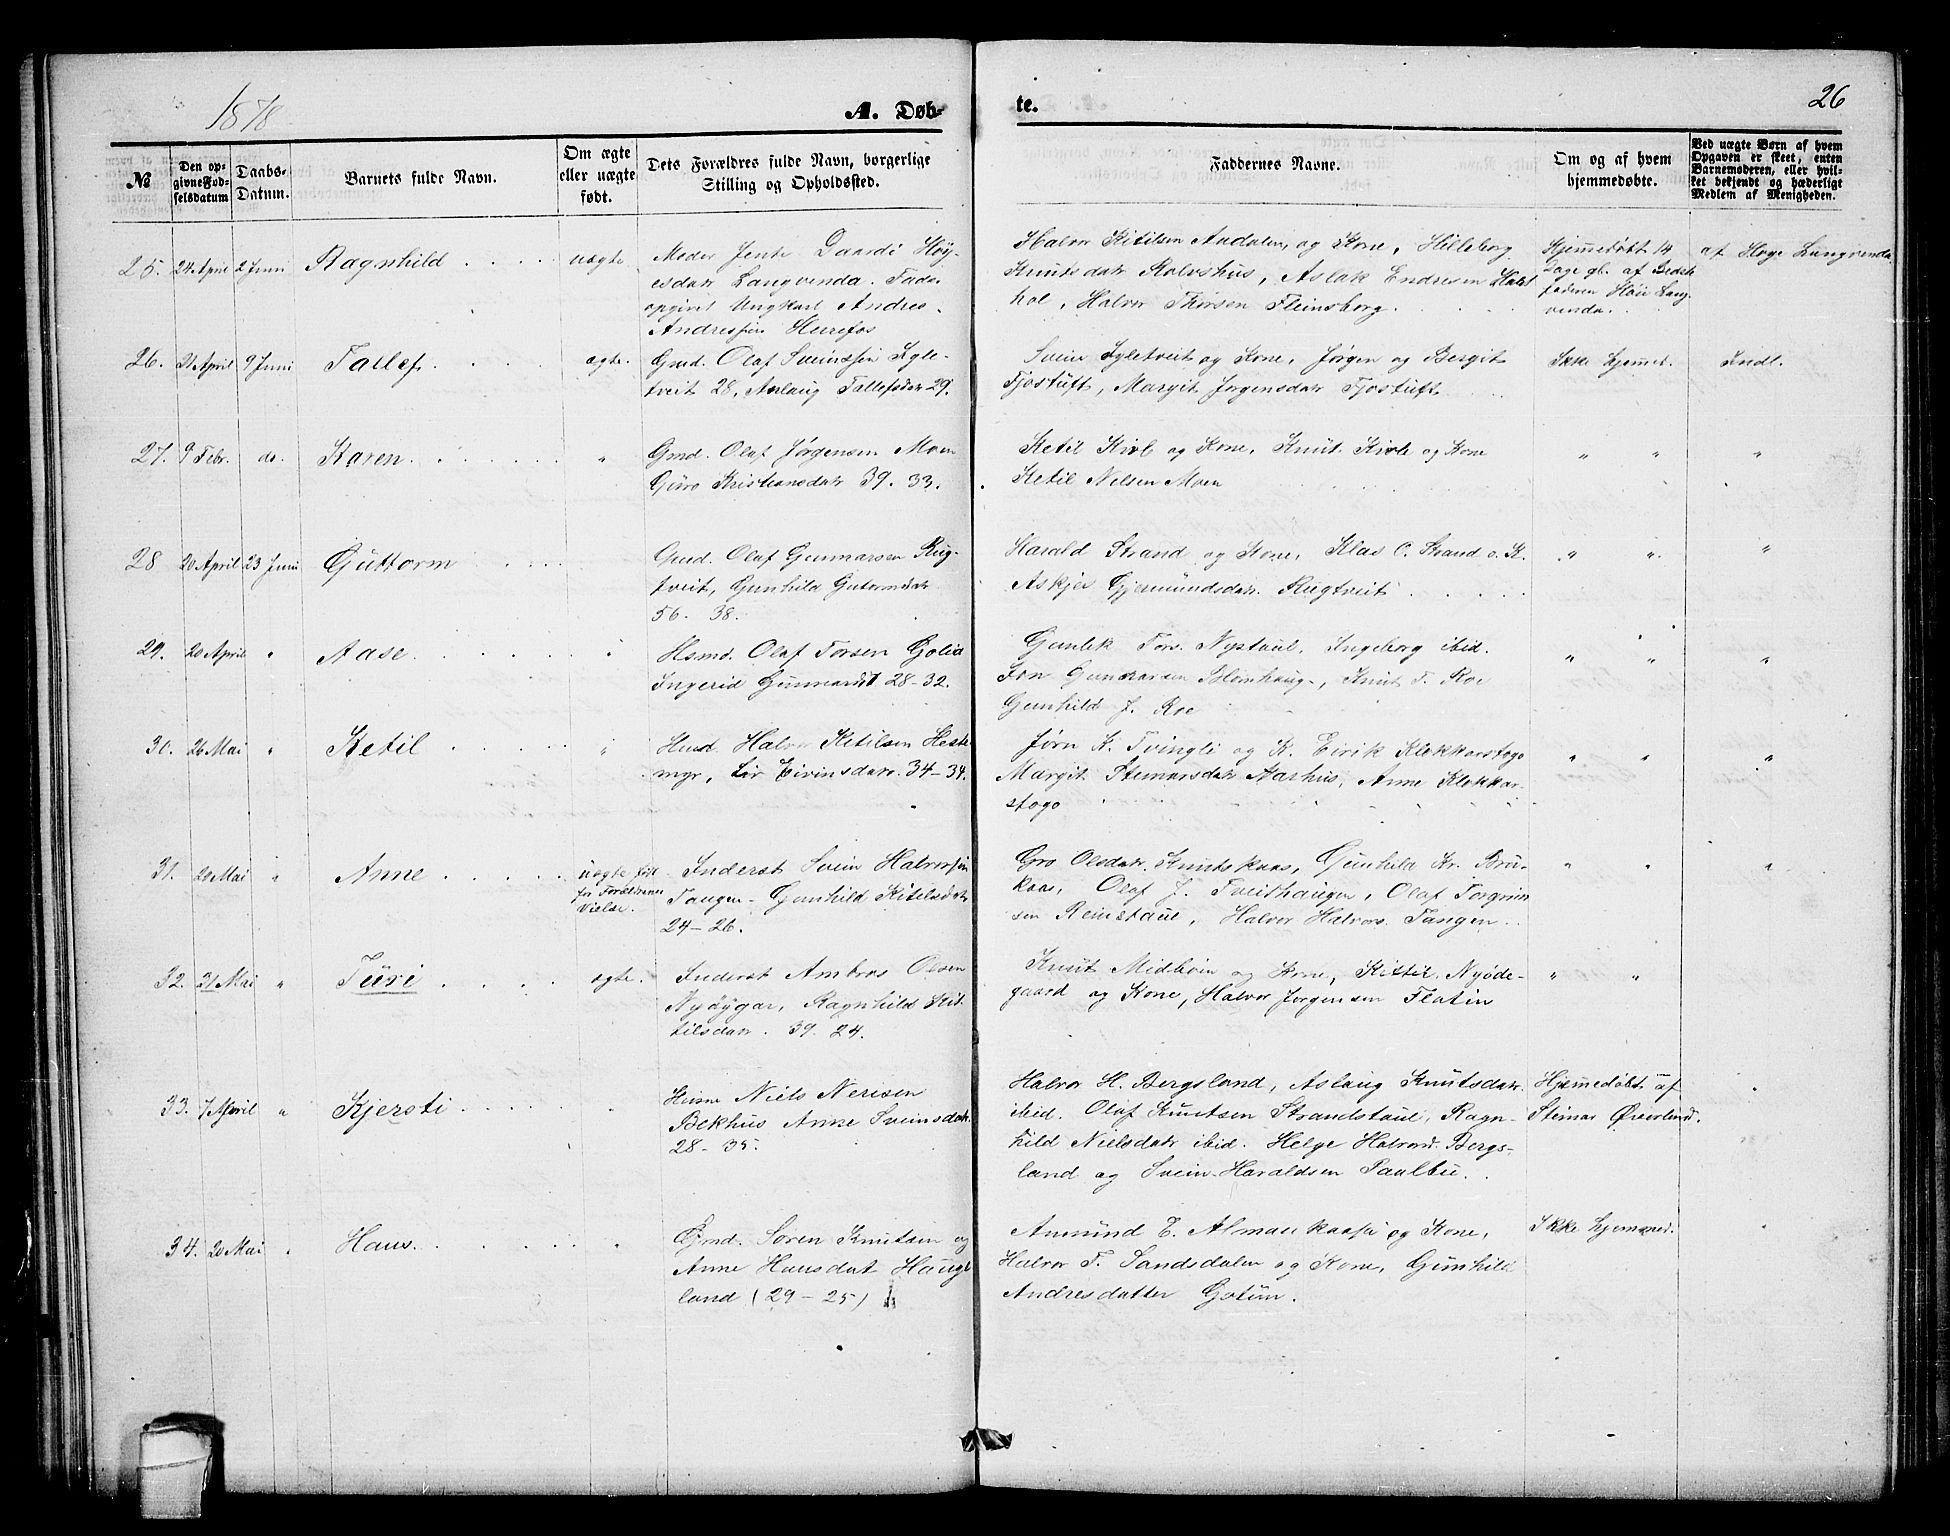 1878
A. Døb-
te.
26
№
Den op-
givne Fød-
selsdatum
Daabs-
Datum.
Barnets fulde Navn.
Om ægte
eller uægte
født.
Dets Forældres fulde Navn, borgerlige
Stilling og Opholdssted.
Faddernes Navne.
Om og af hvem
hjemmedøbte.
Ved uægte Børn af hvem
Opgaven er skeet, enten
Barnemoderen, eller hvil-
ket bekjendt og hæderligt
Medlem af Menigheden.
25. 24 April 2 Juni Ragnhild uægte
Moder Jente Daardi Høy-
esdatr Langvenda. Fader
opgivet Ungkarl Andres
Andressøn Hurefos
Halvor Kitilsen Aadalen, og Kone, Hilleborg
Knutsdatr Rolvshus, Aslak Endresen
hol, Halvor Thorsen Fleinsborg
Hjemmedøbt 14
Dage gl. af Bedste
faderen Høie Lang
venda.
af Høge Langvenda
26. 21 April 9 Juni Tallef ægte.
Gmd. Olaf Sveinssøn Lyle-
tveit 28, Aslaug Tallefsdatr 29.
Svein Lyletveit og Kone, Jørgen og Bergit
Tjostuft, Margit Jørgensdatr Tjostuft
Ikke hjemmed.
Indl.
27. 9 Febr. do. Karen "
Gmd. Olaf Jørgensen Moen
Guro Kristiansdatr 39. 33.
Ketil Kivle og Kone, Knut Kivle og Kone
Ketil Nilsen Moen
" " "
28 20 April 23 Juni Guttorm
Gmd. Olaf Gunnarsen Rug-
tveit, Gunhild Gutormsdatr
56. 38.
Harald Strand og Kone, Klas O. Strand o. K.
Askjer Gjermundsdatr Rugtveit
" " "
29. 20 April " Aase "
Hsmd. Olaf Torsen Golid
Ingerid Gunnarsdt 28-32.
Gunlek Tors. Nystaul, Ingeborg ibid.
Jon Gunnarsen Blomhaug, Knut T. Roe
Gunhild J. Roe
" " "
30. 26 Mai " Ketil "
Hmd. Halvor Kitilsen Heste
myr, Liv Eivinsdatr. 34-34.
Jørn K. Tvingli og K. Eirik Klokkarstogo
Margit Steinarsdatr Aarhus, Anne Klokkar-
stogo
" " "
31. 20 Mai " Anne uægte født
før Forældrenes
Vielse.
Inderst Svein Halvorsøn
Tangen - Gunhild Kitilsdatr
24-26.
Gro Olsdatr Knutskaas, Gunhild Kr. Brøi-
kaas, Olaf J. Tveithaugen, Olaf Torgrim
sen Reinstaul, Halvor Halvors. Tangen.
" " "
32. 21 Mai " Turi ægte.
Inderst Ambros Olsen
Nyøygar, Ragnhild Kit-
tilsdatr. 39. 24.
Knut Midbøen og Kone, Kittil Nyøde-
gaard og Kone, Halvor Jørgensen Flatin
" "
33. 7 April " Kjersti "
Husm Niels Nerisen
Bekhus Anne Sveinsdatr.
28-35.
Halvor H. Bergsland, Aslaug Knutsdatr.
ibid. Olaf Knutsen Strandstaul, Ragn-
hild Nielsdatr ibid. Helge Halvord. Bergs-
land og Svein Haraldsen Taulbu.
Hjemmedøbt af
Steinar Øverland.
34. 20 Mai " Hans. "
Gmd. Søren Knutsen og
Anne Hansdat Haug
land (29-25)
Anmund E. Almankaasa og Kone,
Halvor T. Sandsdalen og Kone, Gunhild
Andresdatter Gotuen.
Ikke hjemmed.